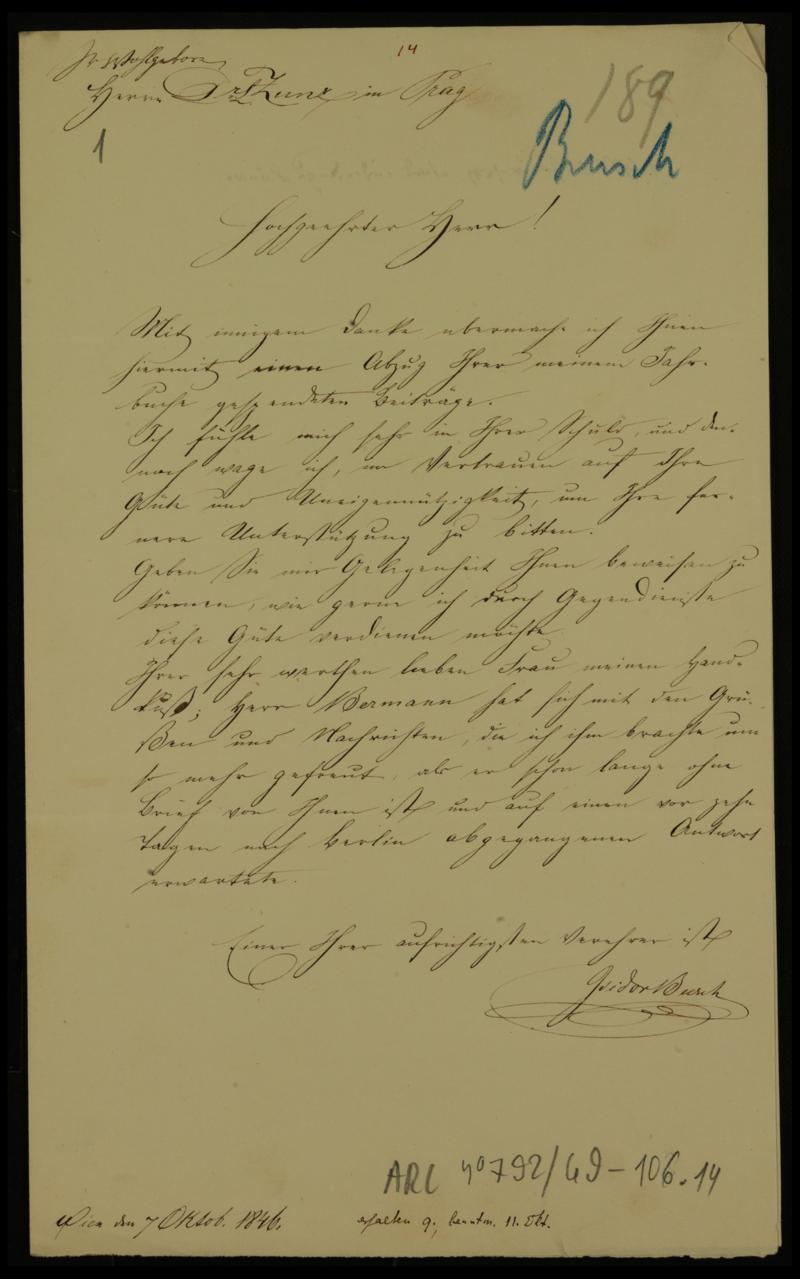 14
Sr Wohlgeborn
Herrn Dr. Zunz in Prag
189
1
Busch
Hochgeehrter Herr!
Mit innigem Danke übermache ich Ihnen
hiermit einen Abzug Ihrer meinem Jahr-
buche gespendeten Beiträge.
Ich fühle mich sehr in Ihrer Schuld, und den-
noch wage ich, im Vertrauen auf Ihre
Güte und Uneigennützigkeit, um Ihre fer-
nere Unterstützung zu bitten.
Geben Sie mir Gelegenheit Ihnen beweisen zu
können, wie gerne ich durch Gegendienste
diese Güte verdienen möchte.
Ihrer sehr werthen lieben Frau meinen Hand-
kuß; Herr Bermann hat sich mit den Grü-
ßen und Nachrichten, die ich ihm brachte um
so mehr gefreut, als er schon lange ohne
Brief von Ihnen ist und auf einen vor zehn
Tagen nach Berlin abgegangenen Antwort
erwartete.
Einer Ihrer aufrichtigsten Verehrer ist
Isidor Busch
ARC 4° 792/G9-106.14
Wien den 7 Oktob. 1846.
erhalten 9, beantw. 11. Okt.